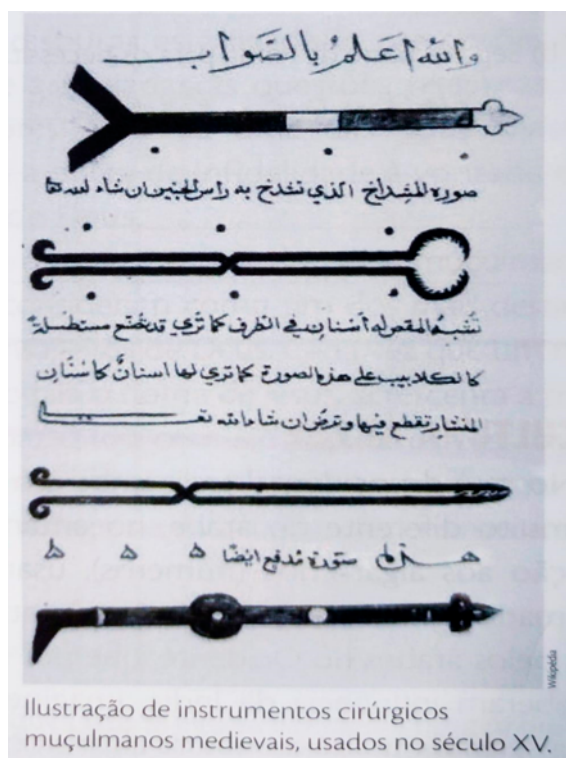 والله اعلم بالصواب
صورة المشداخ الذي تشدخ به راس الجنين ان شاء الله
تشبه المقص له أسنان في الطرف كما تري قد تصنع مستطيلة
كالكلاليب على هذه الصورة كما تري لها اسنان كاسنان
المنشار تقطع فيها وترض ان شاء الله
صورة مدفع ايضا
Wikipédia
Ilustração de instrumentos cirúrgicos
muçulmanos medievais, usados no século XV.